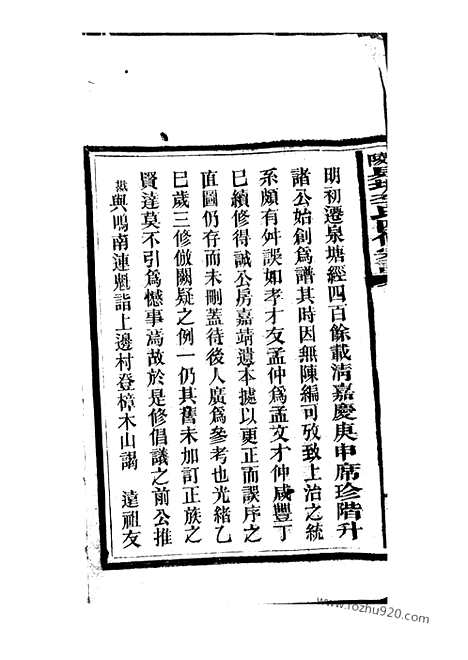 明初遷泉塘經四百餘載清嘉慶庚申席珍階升
諸公始創為譜其時因無陳編可攷致上治之統
系頗有舛誤如孝才友孟仲為孟文才仲咸豐丁
巳續修得誠公房嘉靖遺本據以更正而誤序之
直圖仍存而未刪蓋待後人廣為參考也光緒乙
巳歲三修倣闕疑之例一仍其舊未加訂正族之
賢達莫不引為憾事焉故於是修倡議之前公推
與鳴南連魁詣上邊村登樟木山謁 遠祖友
www.rozhu920.com